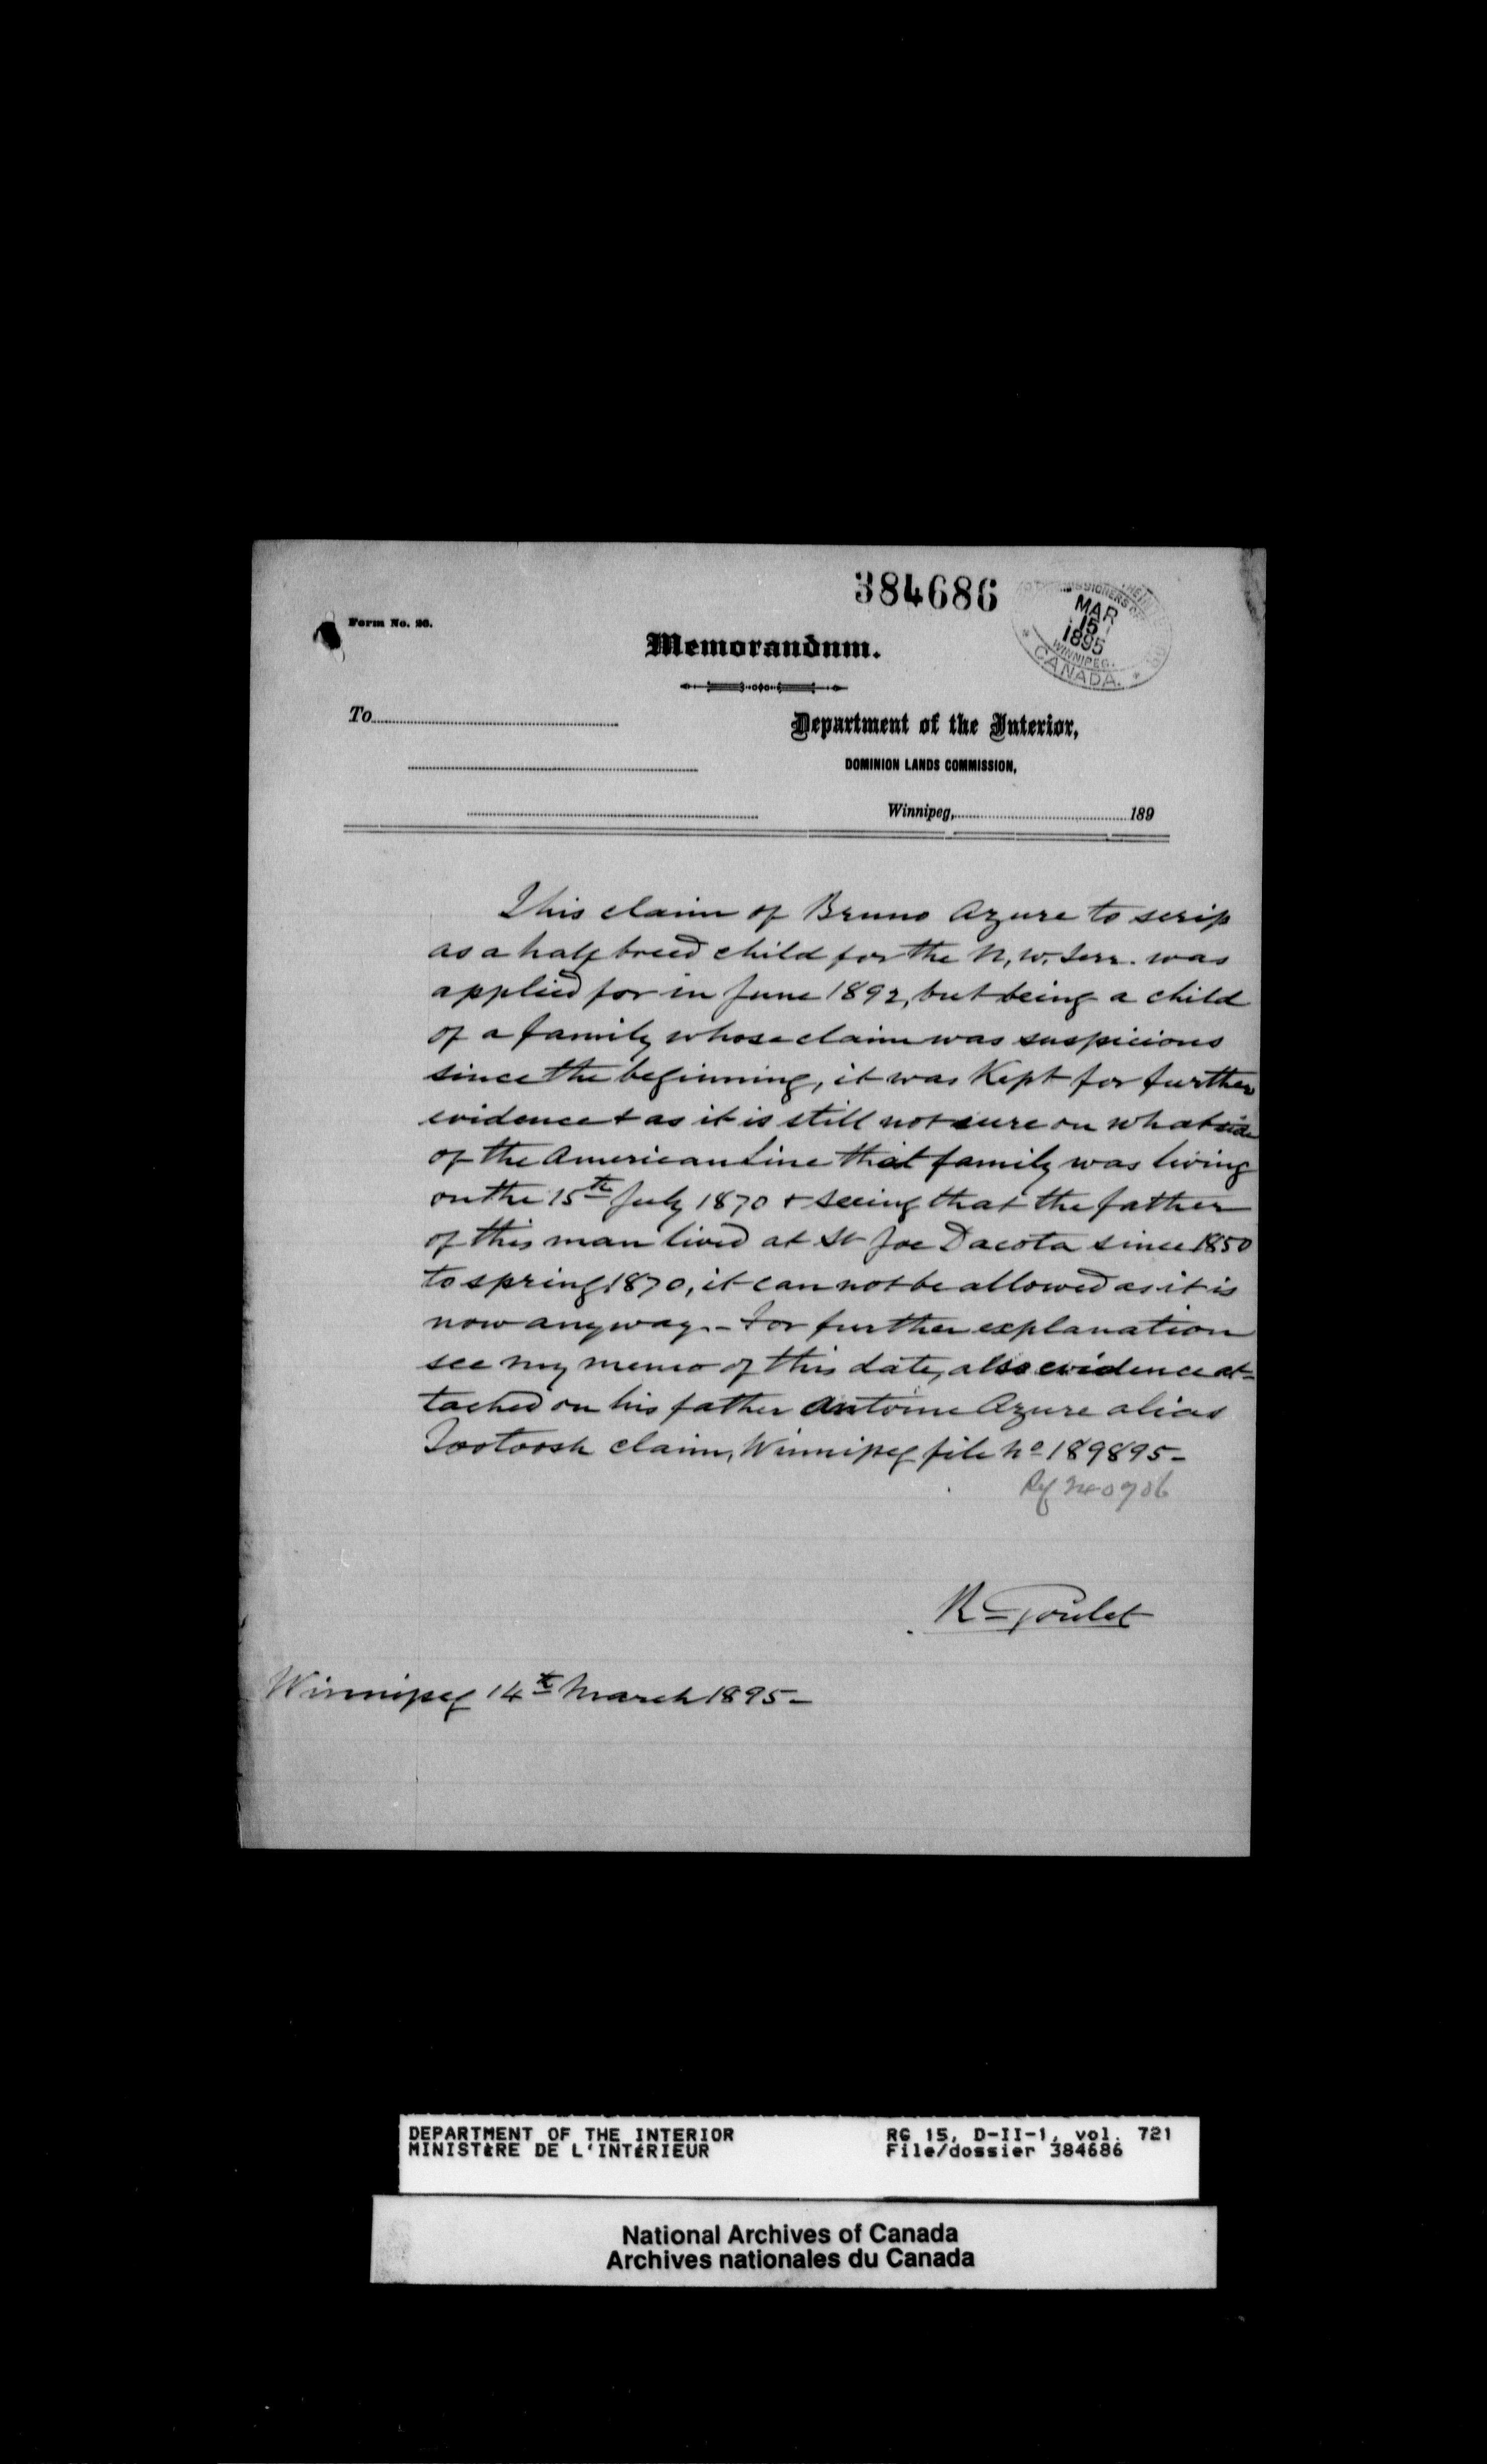 384686
MAR
15
1895
WINNIPEG.
CANADA.
Form No. 26.
Memorandum.
To
Department of the Interior,
DOMINION LANDS COMMISSION,
Winnipeg, 189
This claim of Bruno Azure to scrip
as a half breed child for the N. W. Terr. was
applied for in June 1892, but being a child
of a family whose claim was suspicious
since the beginning, it was Kept for further
evidence & as it is still not sure on what side
of the American Line that family was living
on the 15th July 1870 & seeing that the father
of this man lived at St Joe Dacota since 1850
to spring 1870, it can not be allowed as it is
now anyway. - For further explanation
see my memo of this date, also evidence at=
tached on his father Antoine Azure alias
Tootoosh claim, Winnipeg file No 189895-
Ref
R Goulet
Winnipeg 14th March 1895-
DEPARTMENT OF THE INTERIOR RG 15, D-II-1, vol. 721
MINISTÈRE DE L'INTÉRIEUR File/dossier 384686
National Archives of Canada
Archives nationales du Canada